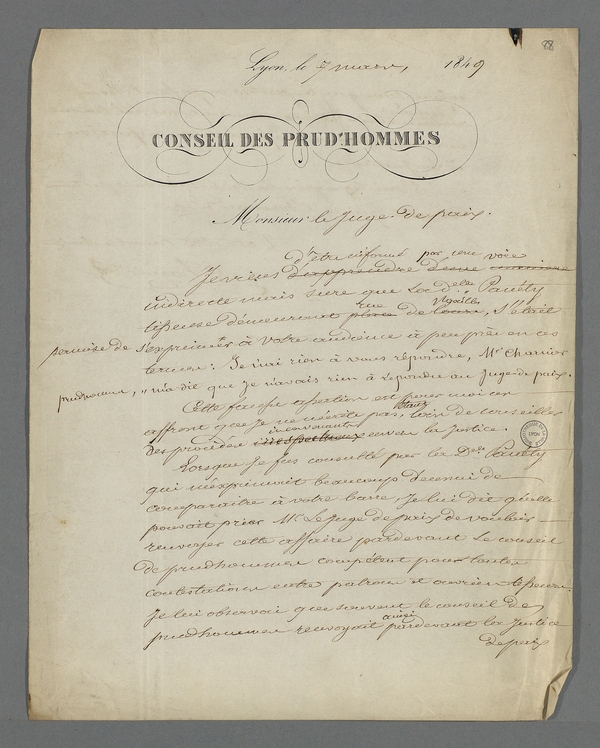 88
Lyon, le 7 mars, 1849
CONSEIL DES PRUD'HOMMES
Monsieur le Juge de paix.
d'être informé par une voie
Je viens d'apprendre d'une manière
indirecte mais sure que la Delle Pauèty
tisseuse demeurant place rue de Noailles, s'était
permise de s'exprimer à votre audience à peu près en ces
termes: Je n'ai rien à vous répondre, Mr Charnier
prudhomme, m'a dit que je n'avais rien à répondre au Juge de paix.
Cette fausse assertion est pour moi un
affront que je ne mérite pas, loin de conseiller
des procédés inconvenants irrespectueux envers la Justice.
Lorsque je fus consulté par la Delle Pauèty
qui m'exprimait beaucoup d'ennui de
comparaître à votre barre, je lui dis qu'elle
pouvait prier Mr Le Juge de paix de vouloir
renvoyer cette affaire pardevant le conseil
de prudhommes compétent pour toutes
contestations entre patrons et ouvriers tisseurs.
Je lui observai que souvent le conseil des
prudhommes renvoyait aussi pardevant la Justice
de paix